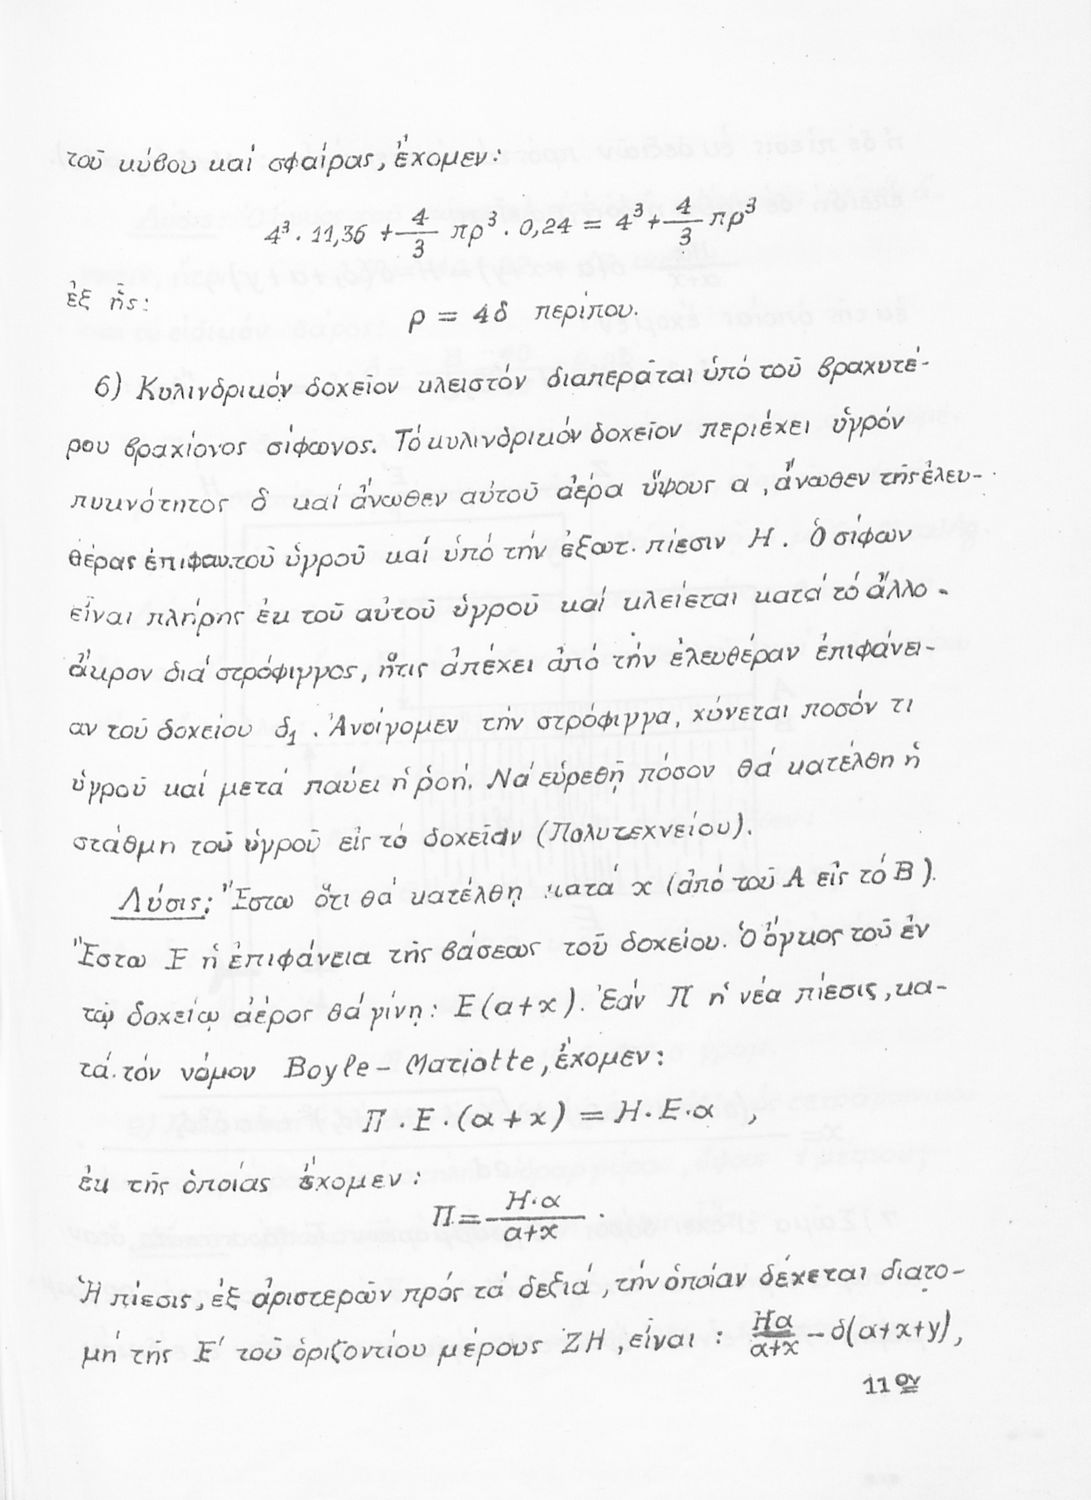 τοῦ κύβου καί σφαίρας, ἔχομεν:
4³ · 11,36 + 4/3 πρ³ · 0,24 = 4³ + 4/3 πρ³
ἐξ ἧς:
ρ = 4δ περίπου.
6) Κυλινδρικόν δοχεῖον κλειστόν διαπερᾶται ὑπό τοῦ βραχυτέ-
ρου βραχίονος σίφωνος. Τό κυλινδρικόν δοχεῖον περιέχει ὑγρόν
πυκνότητος δ καί ἄνωθεν αὐτοῦ ἀέρα ὕψους α, ἄνωθεν τῆς ἐλευ-
θέρας ἐπιφαν. τοῦ ὑγροῦ καί ὑπό τήν ἐξωτ. πίεσιν Η. Ὁ σίφων
εἶναι πλήρης ἐκ τοῦ αὐτοῦ ὑγροῦ καί κλείεται κατά τό ἄλλο
ἄκρον διά στρόφιγγος, ἥτις ἀπέχει ἀπό τήν ἐλευθέραν ἐπιφάνει-
αν τοῦ δοχείου δ₁. Ἀνοίγομεν τήν στρόφιγγα, χύνεται ποσόν τι
ὑγροῦ καί μετά παύει ἡ ῥοή. Νά εὑρεθῇ πόσον θά κατέλθη ἡ
στάθμη τοῦ ὑγροῦ εἰς τό δοχεῖον (Πολυτεχνείου).
Λύσις: Ἔστω ὅτι θά κατέλθῃ κατά x (ἀπό τοῦ Α εἰς τό Β).
Ἔστω Ε ἡ ἐπιφάνεια τῆς βάσεως τοῦ δοχείου. Ὁ ὄγκος τοῦ ἐν
τῷ δοχείῳ ἀέρος θά γίνῃ: Ε(α+x). Ἐάν Π ἡ νέα πίεσις, κα-
τά τόν νόμον Boyle - Mariotte, ἔχομεν:
Π · Ε · (α + x) = Η · Ε · α ,
ἐκ τῆς ὁποίας ἔχομεν:
Π = Η·α / α+x .
Ἡ πίεσις, ἐξ ἀριστερῶν πρός τά δεξιά, τήν ὁποίαν δέχεται διατο-
μή τῆς Ε' τοῦ ὁριζοντίου μέρους ΖΗ, εἶναι : Ηα/α+x - δ(α+x+y),
11ον